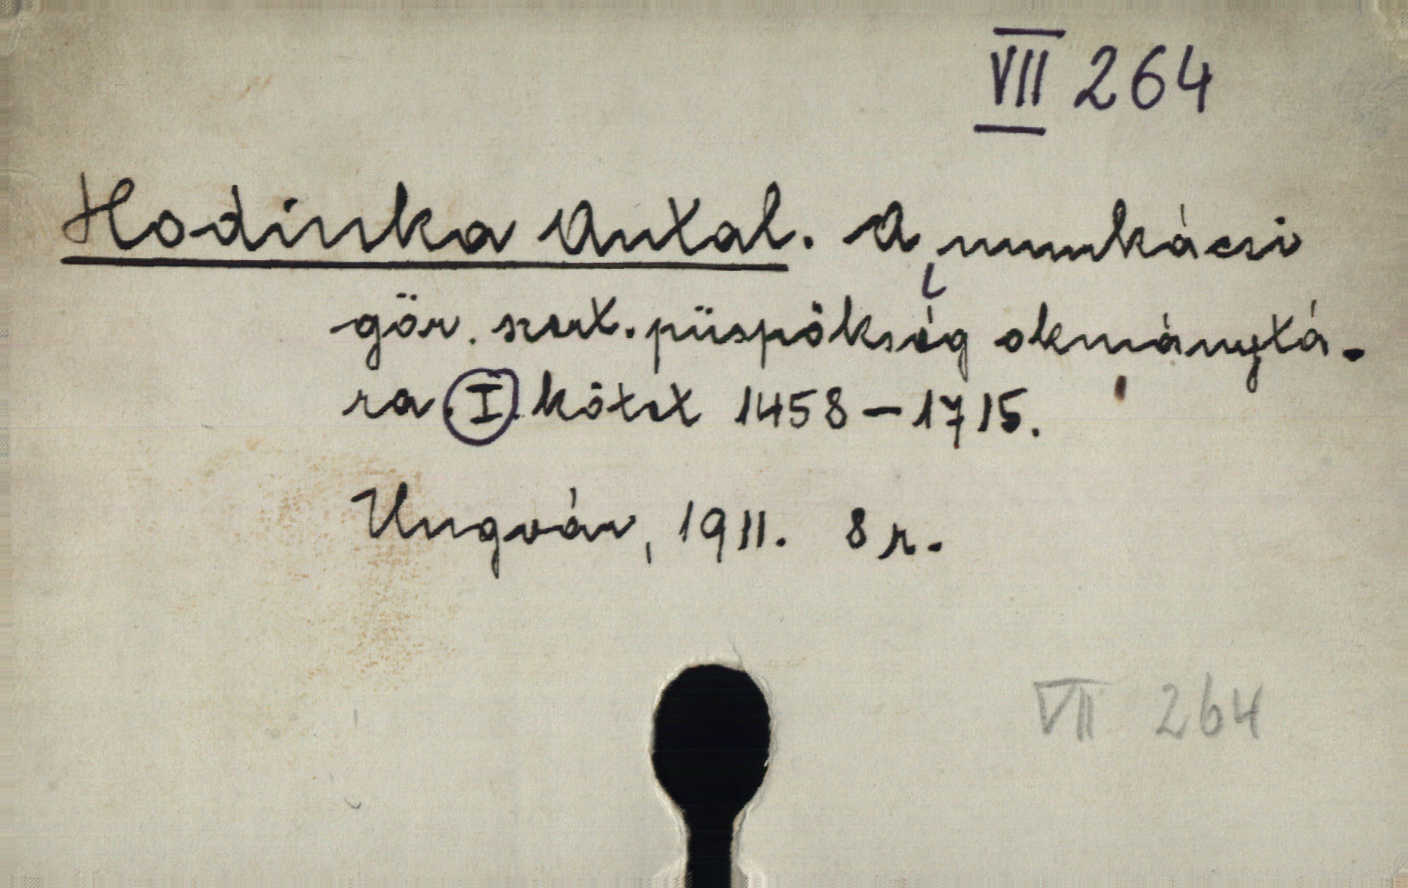 VII 264
Hodinka Antal. A munkácsi
gör. szert. püspökség okmánytá-
ra. I. kötet 1458-1715.
Ungvár, 1911. 8 r.
VII 264